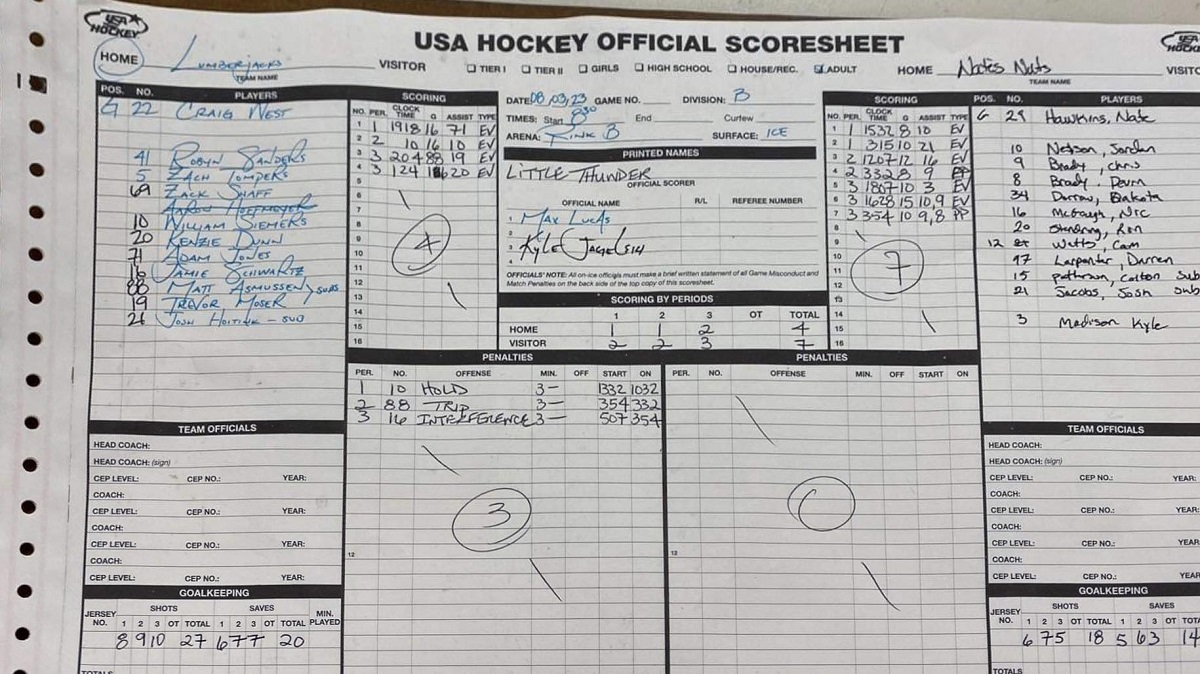 USA HOCKEY
USA HOCKEY OFFICIAL SCORESHEET
HOME Lumberjacks VISITOR
TEAM NAME
TIER I TIER II GIRLS HIGH SCHOOL HOUSE/REC. ADULT
HOME Nates Nats
TEAM NAME
POS. NO. PLAYERS
G 22 CRAIG WEST
41 ROBYN SANDERS
5 ZACH TOMPERS
69 ZACK SHAFF
AARON HOFFMEYER
10 WILLIAM SIEMERS
20 KENZIE DUNN
71 ADAM JONES
16 JAMIE SCHWARTZ
88 MATT ASMUSSEN > SUBS
19 TREVOR MOSER
21 JOSH HOITINK - SUB
SCORING
NO. PER. CLOCK TIME G ASSIST TYPE
1 1 1918 16 71 EV
2 2 10 16 10 EV
3 3 204 88 19 EV
4 3 124 16 20 EV
5
6
7
8
9
10
11
12
13
14
15
16
4
DATE 08,03,23 GAME NO. DIVISION: B
TIMES: Start 8:30 End Curfew
ARENA: RINK B SURFACE: ICE
PRINTED NAMES
LITTLE THUNDER
OFFICIAL SCORER
OFFICIAL NAME R/L REFEREE NUMBER
1 MAX LUCAS
2
3
4
OFFICIALS' NOTE: All on-ice officials must make a brief written statement of all Game Misconduct and
Match Penalties on the back side of the top copy of this scoresheet.
SCORING BY PERIODS
1 2 3 OT TOTAL
HOME 1 1 2 4
VISITOR 2 2 3 7
SCORING
NO. PER. CLOCK TIME G ASSIST TYPE
1 1 1532 8 10 EV
2 1 315 10 21 EV
3 2 1207 12 16 EV
4 2 332 8 9 PP
5 3 1807 10 3 EV
6 3 1628 15 10,9 EV
7 3 354 10 9,8 PP
8
9
10
11
12
13
14
15
16
7
POS. NO. PLAYERS
G 29 Hawkins, Nate
10 Nelson, Jordan
9 Brady, Chris
8 Brady, Devin
34 Darrow, Dakota
16 McGaugh, Nic
20 Standring, Ron
12 Watts, Cam
97 Carpenter, Darren
15 Patterson, Colton Sub
21 Jacobs, Josh Sub
3 Madison Kyle
PENALTIES
PER. NO. OFFENSE MIN. OFF START ON
1 10 HOLD 3- 1332 1032
2 88 TRIP 3- 354 332
3 16 INTERFERENCE 3- 507 354
3
12
PENALTIES
PER. NO. OFFENSE MIN. OFF START ON
0
12
TEAM OFFICIALS
HEAD COACH:
HEAD COACH: (sign)
CEP LEVEL: CEP NO.: YEAR:
COACH:
CEP LEVEL: CEP NO.: YEAR:
COACH:
CEP LEVEL: CEP NO.: YEAR:
COACH:
CEP LEVEL: CEP NO.: YEAR:
GOALKEEPING
JERSEY NO. SHOTS SAVES MIN. PLAYED
1 2 3 OT TOTAL 1 2 3 OT TOTAL
8 9 10 27 6 7 7 20
TOTALS
TEAM OFFICIALS
HEAD COACH:
HEAD COACH: (sign)
CEP LEVEL: CEP NO.: YEAR:
COACH:
CEP LEVEL: CEP NO.: YEAR:
COACH:
CEP LEVEL: CEP NO.: YEAR:
COACH:
CEP LEVEL: CEP NO.: YEAR:
GOALKEEPING
JERSEY NO. SHOTS SAVES
1 2 3 OT TOTAL 1 2 3 OT TOTAL
6 7 5 18 5 6 3 14
TOTALS